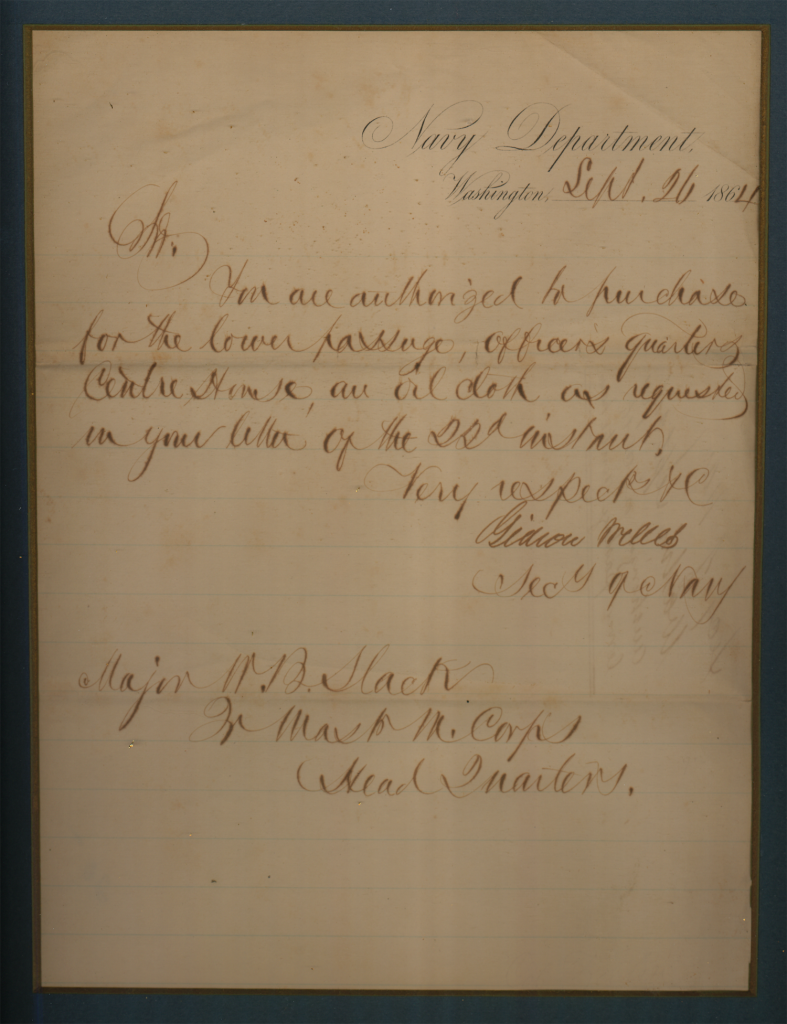 Navy Department,
Washington, Sept. 26 1864
Sir.
You are authorized to purchase
for the lower passage, officers quarters
Centre House, an oil cloth as requested
in your letter of the 22d instant.
Very respect &C
Gideon Welles
Secy of Navy
Major W.B. Slack
Qr Mastr M. Corps
Head Quarters.